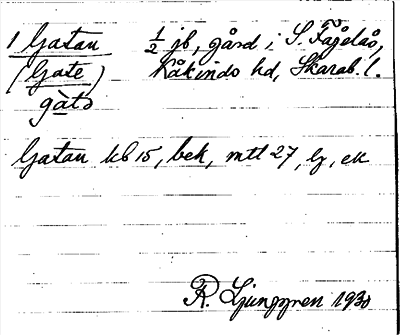 1 Gatan ½ jb, gård i S. Fågelås,
(Gate) Kåkinds hd, Skarab. l.
gàtə
Gatan kb 15, bek, mtl 27, lg, ek
R. Ljunggren 1930